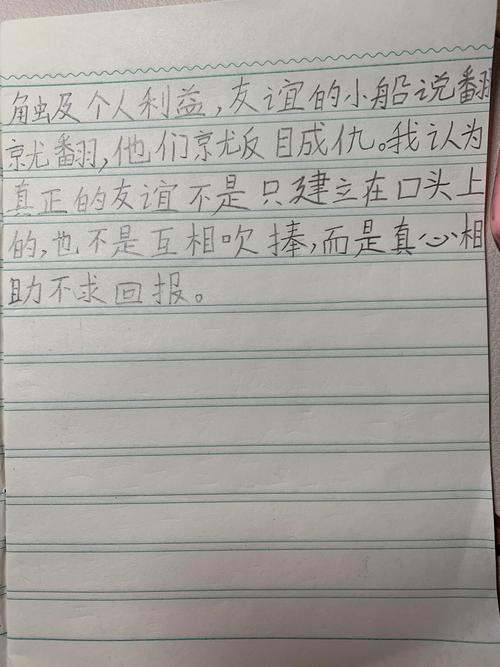 触及个人利益,友谊的小船说翻
就翻,他们就反目成仇。我认为
真正的友谊不是只建立在口头上
的,也不是互相吹捧,而是真心相
助不求回报。